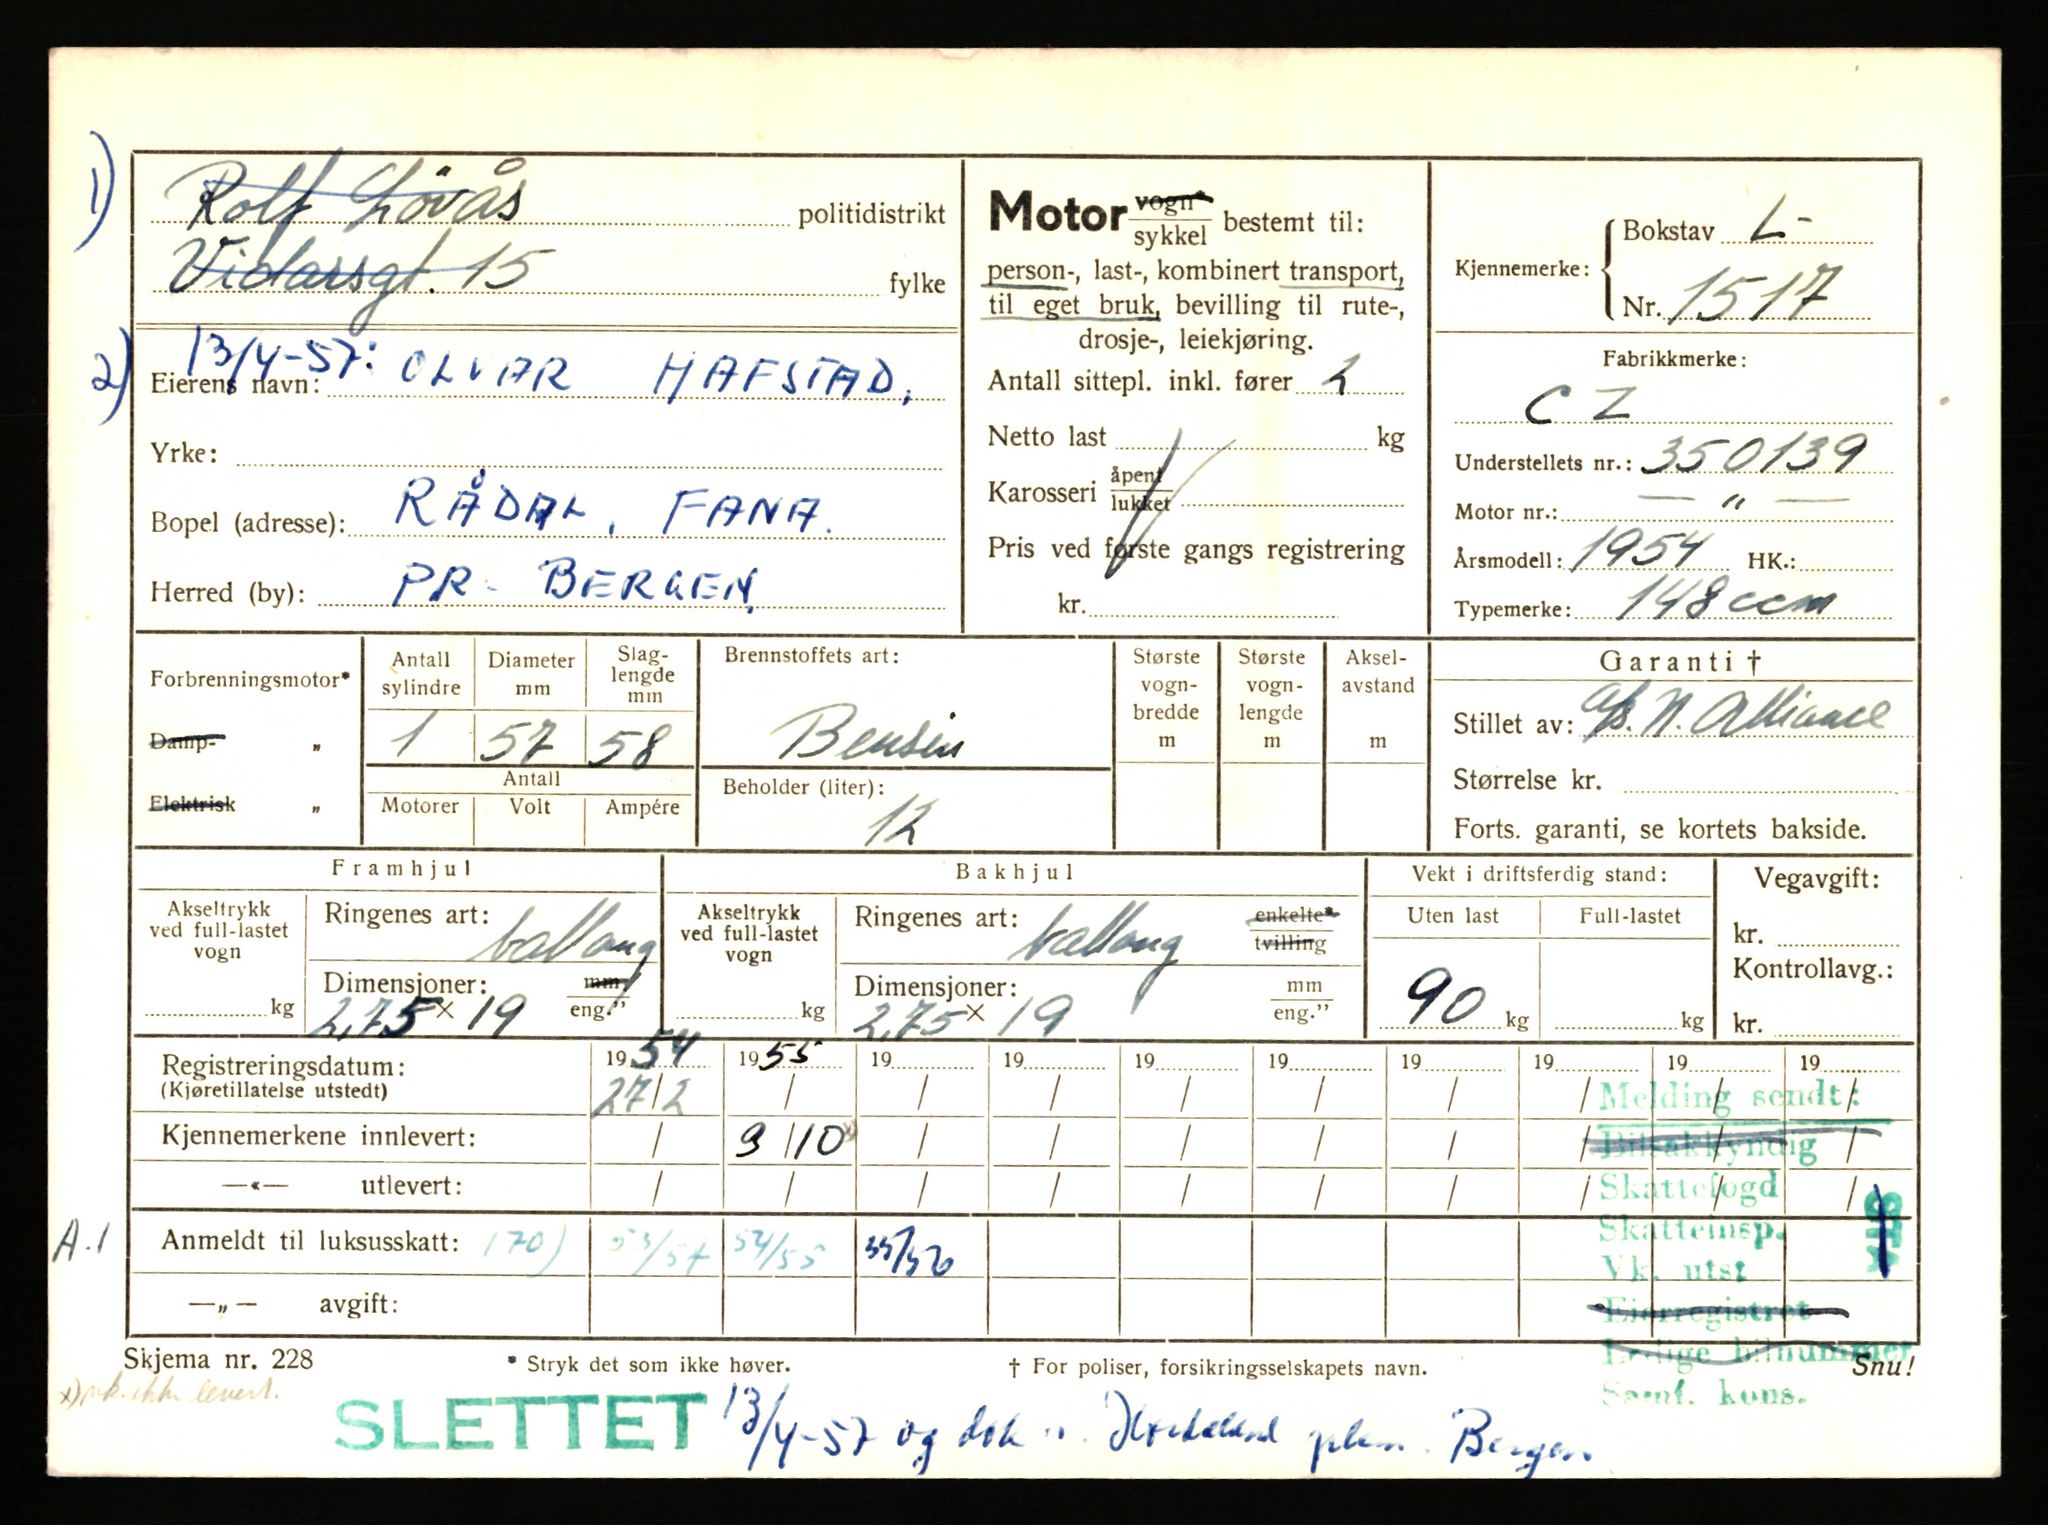 1) Rolf Lövås politidistrikt
Vidarsgt. 15 fylke
2) 13/4-57: OLVAR HAFSTAD,
Eierens navn:
Yrke:
Bopel (adresse): RÅDAL, FANA.
Herred (by): PR. BERGEN.
Motor vogn* sykkel bestemt til:
person-, last-, kombinert transport,
til eget bruk, bevilling til rute-,
drosje-, leiekjøring.
Antall sittepl. inkl. fører 2
Netto last kg
Karosseri åpent lukket
Pris ved første gangs registrering
kr.
Kjennemerke: Bokstav L-
Nr. 1517
Fabrikkmerke:
CZ
Understellets nr.: 350139
Motor nr.: — „ —
Årsmodell: 1954 HK.:
Typemerke: 148 ccm
Forbrenningsmotor*
Damp- „
Elektrisk „
Antall sylindre
Diameter mm
Slag-
lengde
mm
1 57 58
Antall
Motorer Volt Ampére
Brennstoffets art:
Bensin
Beholder (liter):
12
Største
vogn-
bredde
m
Største
vogn-
lengde
m
Aksel-
avstand
m
Garanti †
Stillet av: A/S. N. Alliance
Størrelse kr.
Forts. garanti, se kortets bakside.
Framhjul
Akseltrykk
ved full-lastet
vogn
kg
Ringenes art: ballong
Dimensjoner: mm
2,75 x 19 eng."
Bakhjul
Akseltrykk
ved full-lastet
vogn
kg
Ringenes art: ballong enkelte* tvilling
Dimensjoner: mm
2,75 x 19 eng."
Vekt i driftsferdig stand:
Uten last Full-lastet
90 kg kg
Vegavgift:
kr.
Kontrollavg.:
kr.
Registreringsdatum: 1954 1955 19 19 19 19 19 19 19 19
(Kjøretillatelse utstedt) 27/2 / / / / / / / / /
Kjennemerkene innlevert: / 3/10 x) / / / / / / / /
—«— utlevert: / / / / / / / / / /
A.1 Anmeldt til luksusskatt: 170) 53/54 54/55 55/56
—„— avgift:
Melding sendt:
Bilsakkyndig
Skattefogd
Skatteinsp.
Vk. utst
Eierregistret
Ledige bilnummer
Saml. kons.
Skjema nr. 228 * Stryk det som ikke høver. † For poliser, forsikringsselskapets navn. Snu!
x) vk. ikke levert.
SLETTET 13/4-57 og dok Hordaland Bergen.